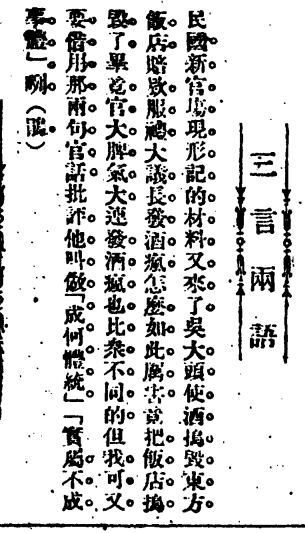 三言兩語
民國新官場現形記的材料又來了吳大頭使酒搗毀東方
飯店賠欵服禮大議長發酒瘋怎麼如此厲害竟把飯店搗
毀了畢竟官大脾氣大連發酒瘋也比衆不同的但我可又
要借用那兩句官話批評他叫做「成何體統」「實屬不成
事體」咧（鵑）